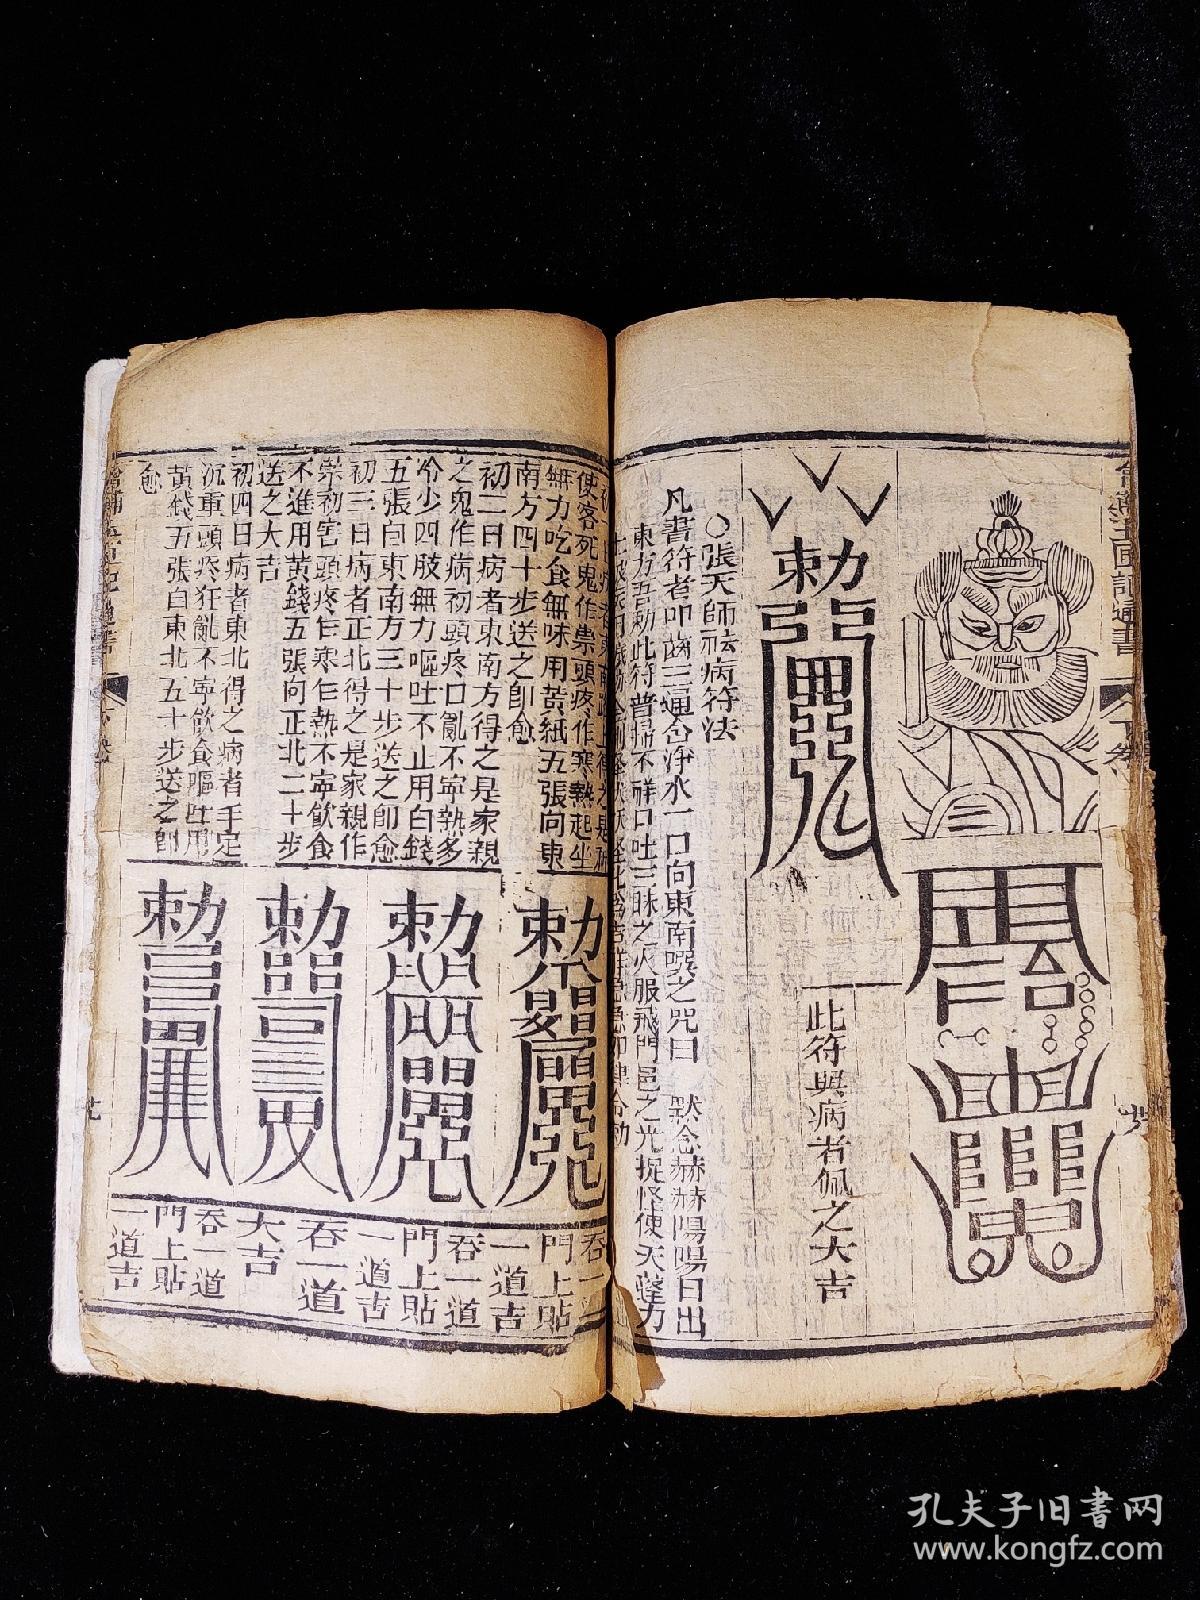 此符與病者佩之大吉
○張天師祛病符法
凡書符者叩齒三通含淨水一口向東南噀之咒曰 默念赫赫陽陽日出
東方吾勅此符普掃不祥口吐三昧之火服飛門邑之光捉怪使天蓬力
使客死鬼作祟頭疼作寒熱起坐
無力吃食無味用黃紙五張向東
南方四十步送之卽愈
初二日病者東南方得之是家親
之鬼作病初頭疼口亂不寧熱多
冷少四肢無力嘔吐不止用白錢
五張向東南方三十步送之卽愈
初三日病者正北得之是家親作
祟初害頭疼乍寒乍熱不寧飲食
不進用黃錢五張向正北二十步
送之大吉
初四日病者東北得之病者手定
沉重頭疼狂亂不寧飲食嘔吐用
黃錢五張向東北五十步送之卽
愈
吞一
門上貼
一道吉
吞一道
門上貼
一道吉
吞一道
大吉
吞一道
門上貼
一道吉
孔夫子旧書网
www.kongfz.com